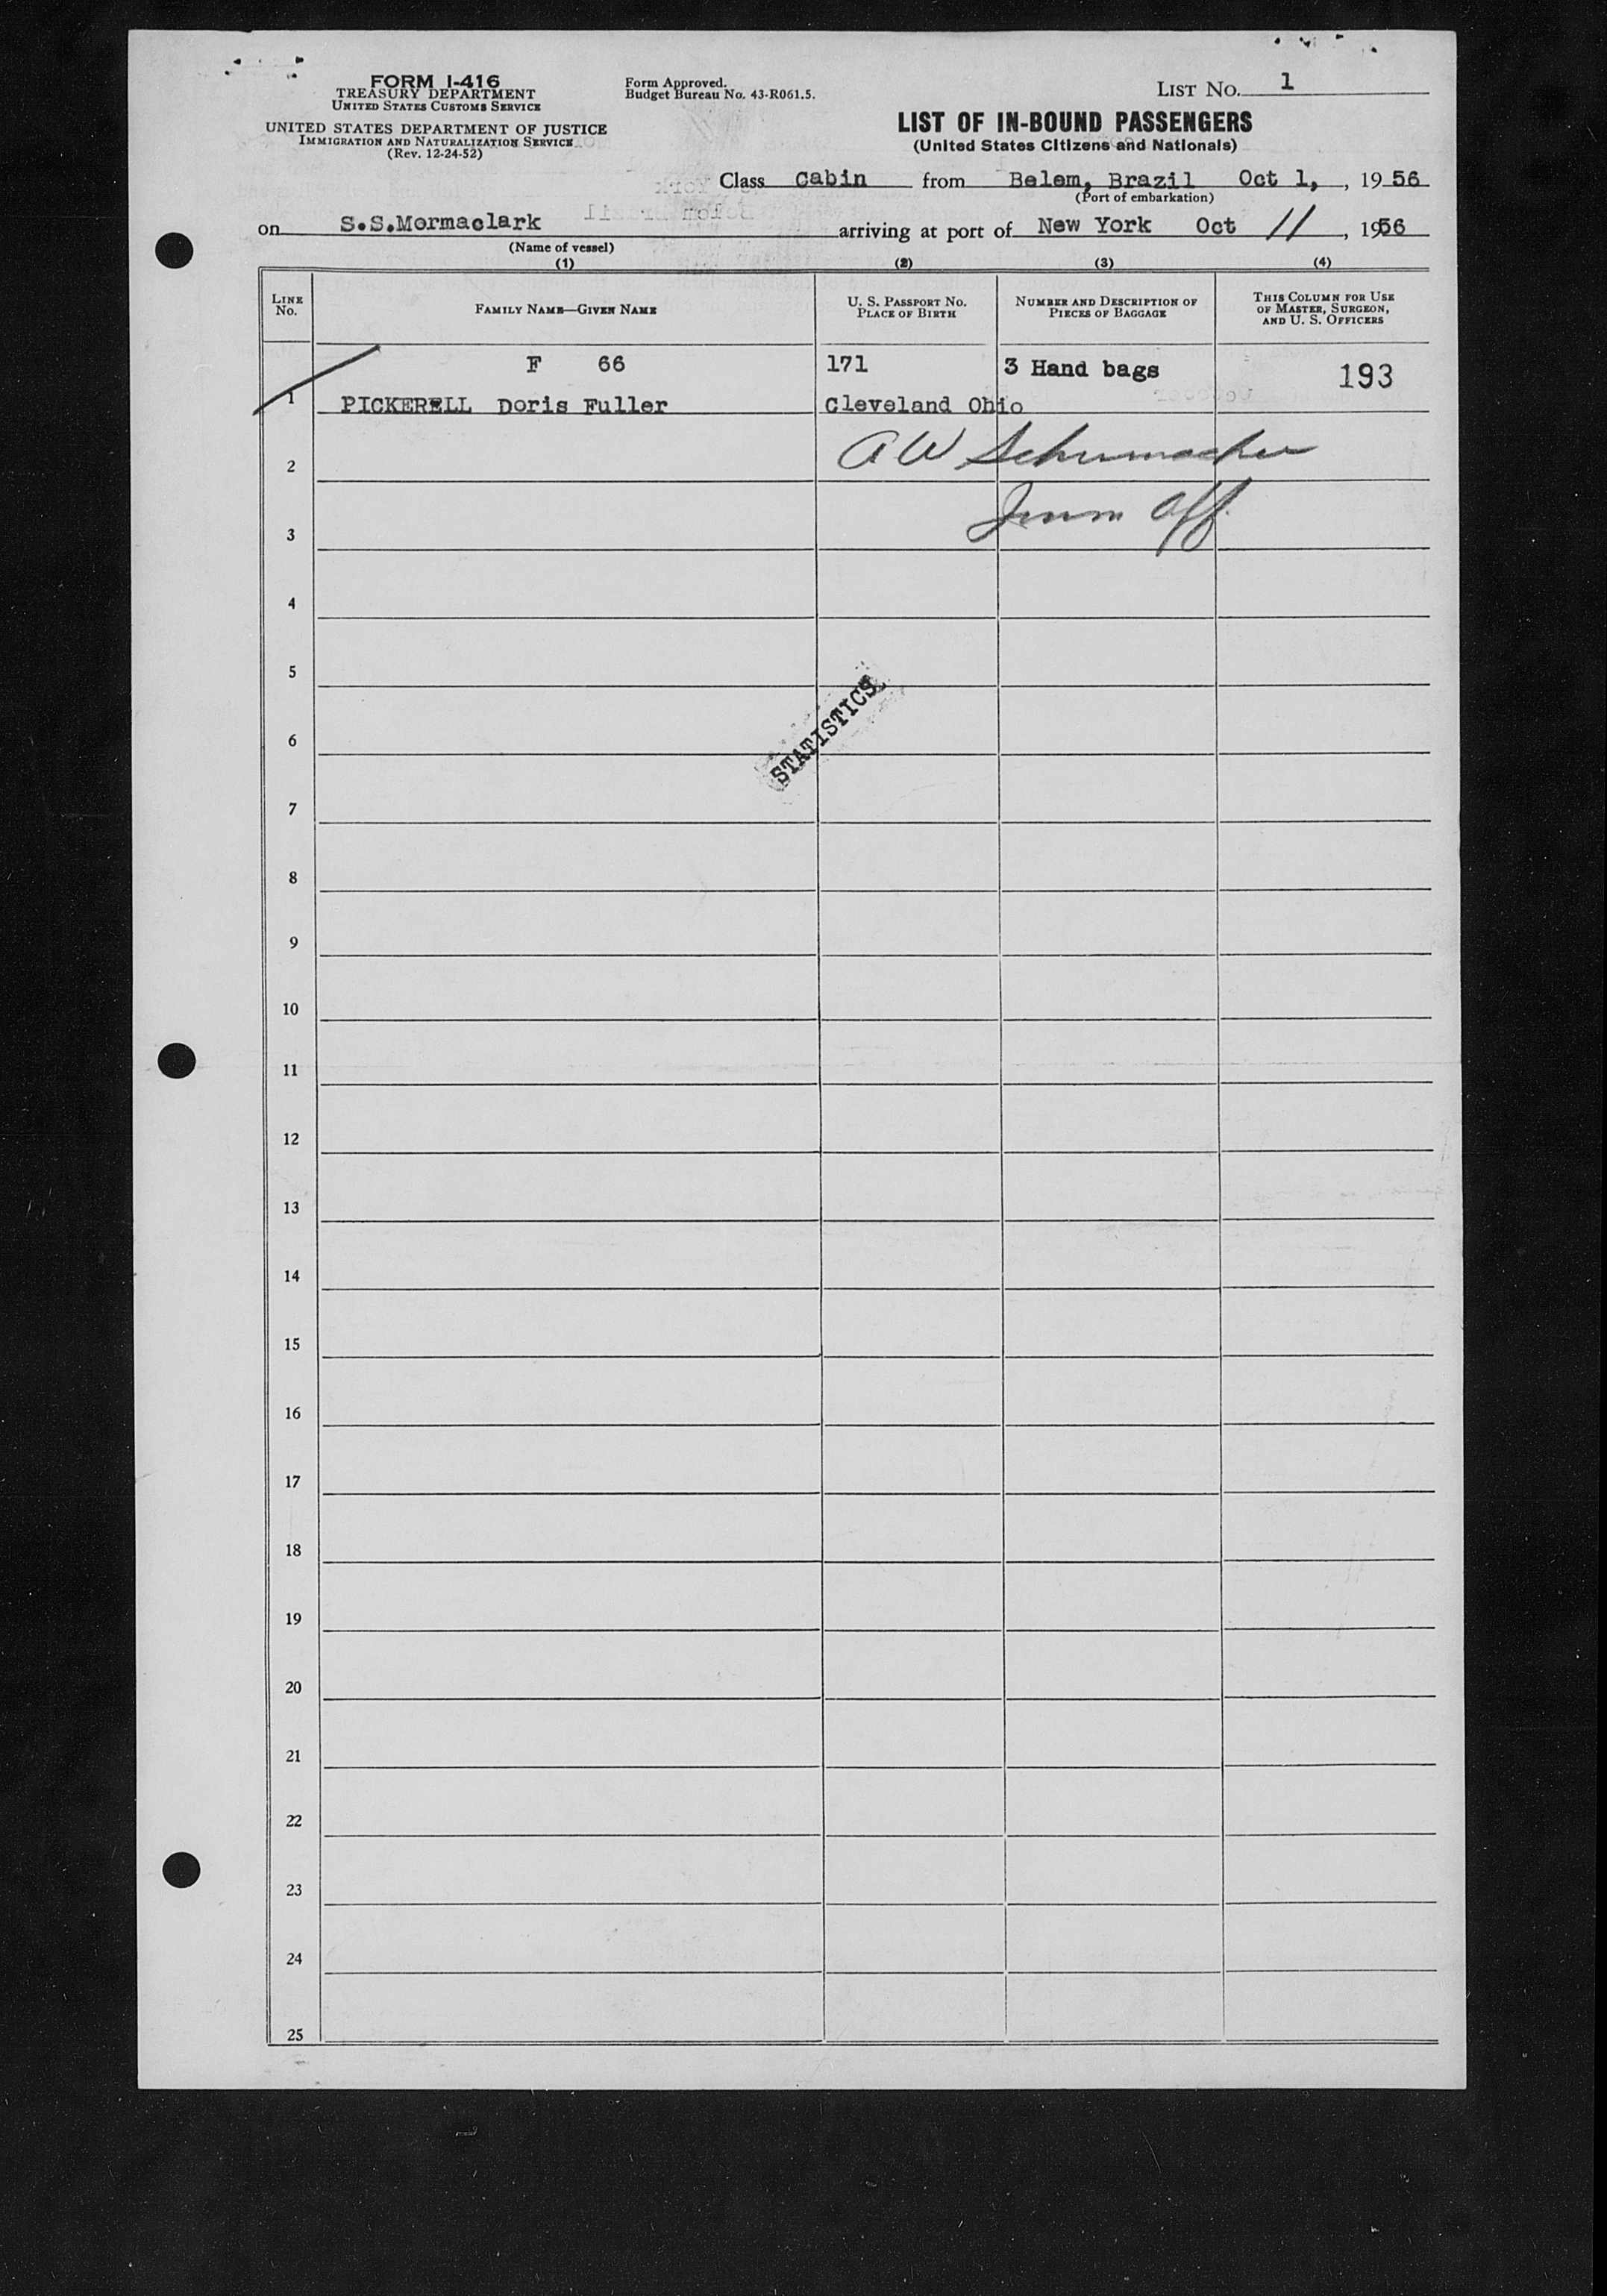 FORM I-416
TREASURY DEPARTMENT
UNITED STATES CUSTOMS SERVICE
UNITED STATES DEPARTMENT OF JUSTICE
IMMIGRATION AND NATURALIZATION SERVICE
(Rev. 12-24-52)
Form Approved.
Budget Bureau No. 43-R061.5.
LIST NO. 1
LIST OF IN-BOUND PASSENGERS
(United States Citizens and Nationals)
Class Cabin from Belem, Brazil Oct 1, , 19 56
(Port of embarkation)
on S.S.Mormaclark arriving at port of New York Oct 11 , 1956
(Name of vessel)
(1) (2) (3) (4)
LINE NO. FAMILY NAME—GIVEN NAME U. S. PASSPORT NO. PLACE OF BIRTH NUMBER AND DESCRIPTION OF PIECES OF BAGGAGE THIS COLUMN FOR USE OF MASTER, SURGEON, AND U. S. OFFICERS
F 66 171 3 Hand bags 193
1 PICKERELL Doris Fuller Cleveland Ohio
2 A W Schumacher
3 Imm Off.
4
5
STATISTICS
6
7
8
9
10
11
12
13
14
15
16
17
18
19
20
21
22
23
24
25